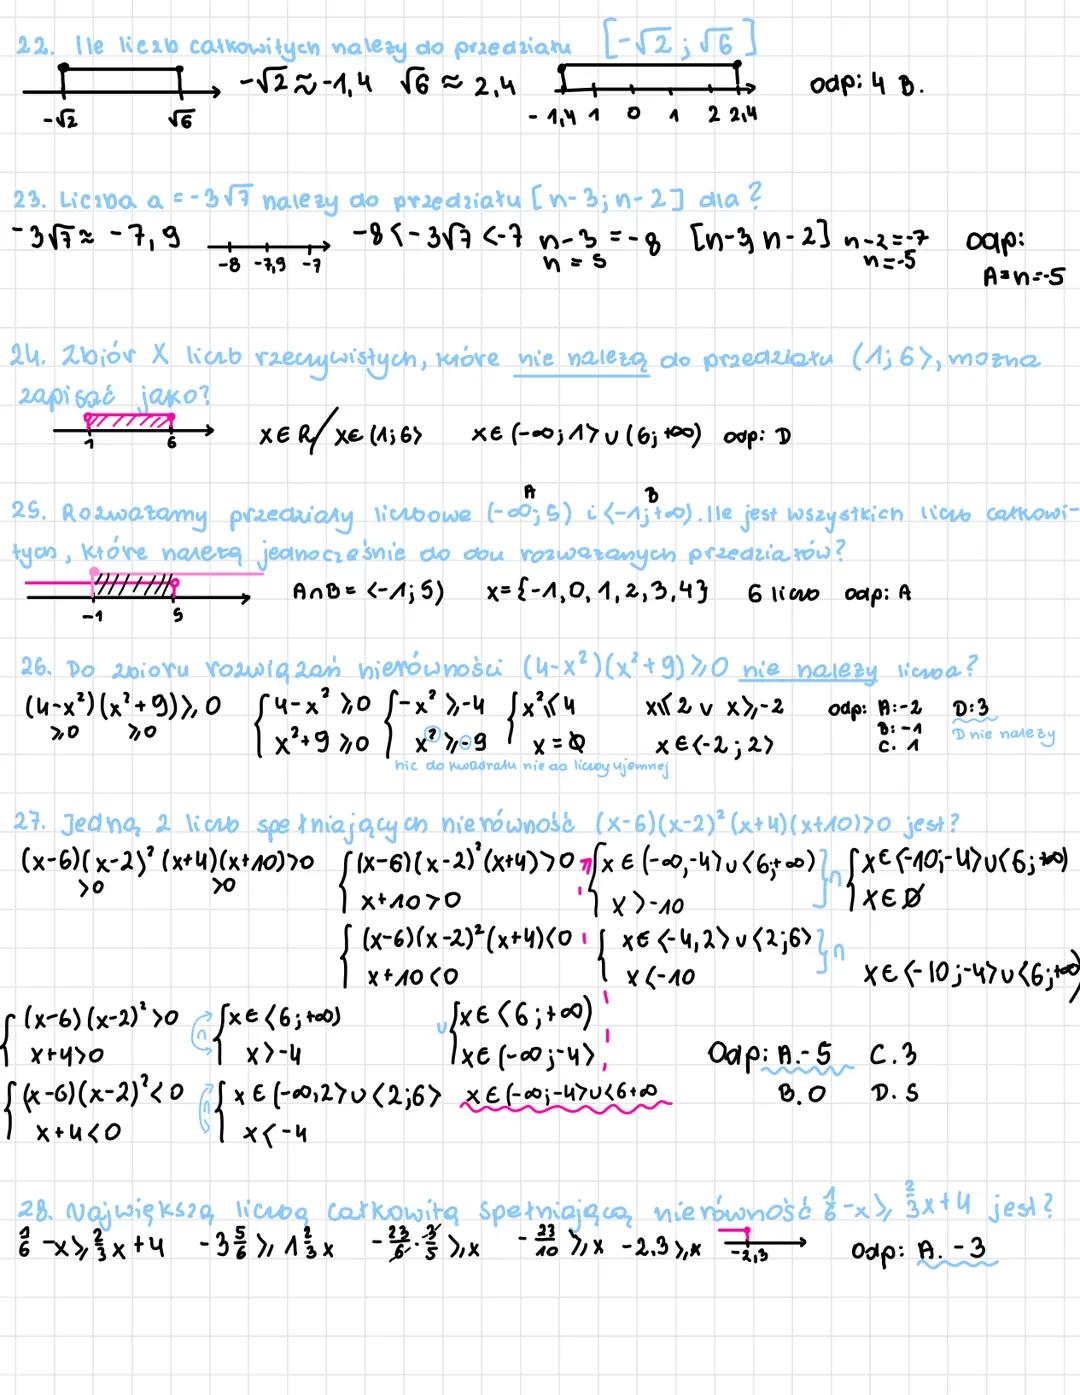 22. Ile liczb całkowitych należy do przedziału [-√2 ; √6]
-√2 ≈ -1,4 √6 ≈ 2,4 odp: 4 B.
-√2 √6 - 1,4 1 0 1 2 2,4
23. Liczba a = -3√7 należy do przedziału [n-3; n-2] dla?
-3√7 ≈ -7,9 -8 < -3√7 < -7 n-3 = -8 [n-3 n-2] n-2 = -7 odp:
-8 -7,9 -7 n = 5 n = -5 A = n = -5
24. Zbiór X liczb rzeczywistych, które nie należą do przedziału (1; 6>, można
zapisać jako?
1 6 x ∈ R/ x ∈ (1; 6> x ∈ (-∞; 1> ∪ (6; +∞) odp: D
A B
25. Rozważamy przedziały liczbowe (-∞; 5) i <-1; +∞). Ile jest wszystkich liczb całkowi-
tych, które należą jednocześnie do obu rozważanych przedziałów?
-1 5 A∩B = <-1; 5) x = {-1, 0, 1, 2, 3, 4} 6 liczb odp: A
26. Do zbioru rozwiązań nierówności (4-x²)(x²+9) ≥ 0 nie należy liczba?
(4-x²)(x²+9) ≥ 0 { 4-x² ≥ 0 { -x² ≥ -4 { x² ≤ 4 x ≤ 2 ∨ x ≥ -2 odp: A: -2 D: 3
≥0 ≥0 x²+9 ≥ 0 x² ≥ -9 x = ∅ x ∈ <-2 ; 2> B: -1 C. 1 D nie należy
nic do kwadratu nie da liczby ujemnej
27. Jedną z liczb spełniających nierówność (x-6)(x-2)²(x+4)(x+10) > 0 jest?
(x-6)(x-2)²(x+4)(x+10) > 0 { (x-6)(x-2)²(x+4) > 0 { x ∈ (-∞, -4) ∪ (6; +∞) } ∩ { x ∈ (-10; -4) ∪ (6; +∞)
>0 >0 x+10 > 0 x > -10 x ∈ ∅
{ (x-6)(x-2)²(x+4) < 0 { x ∈ (-4, 2) ∪ (2; 6) } ∩
x+10 < 0 x < -10 x ∈ (-10; -4) ∪ (6; +∞)
{ (x-6)(x-2)² > 0 ∩ { x ∈ (6; +∞) ∪ { x ∈ (6; +∞)
x+4 > 0 x > -4 x ∈ (-∞; -4) Odp: A. -5 C. 3
{ (x-6)(x-2)² < 0 ∩ { x ∈ (-∞, 2) ∪ (2; 6) x ∈ (-∞; -4) ∪ (6 +∞ B. 0 D. 5
x+4 < 0 x < -4
28. Największą liczbą całkowitą spełniającą nierówność 1/6 - x ≥ 2/3x + 4 jest?
1/6 - x ≥ 2/3 x + 4 -3 5/6 ≥ 1 2/3 x -23/6 · 3/5 ≥ x -23/10 ≥ x -2,3 ≥ x -2,3 Odp: A. -3